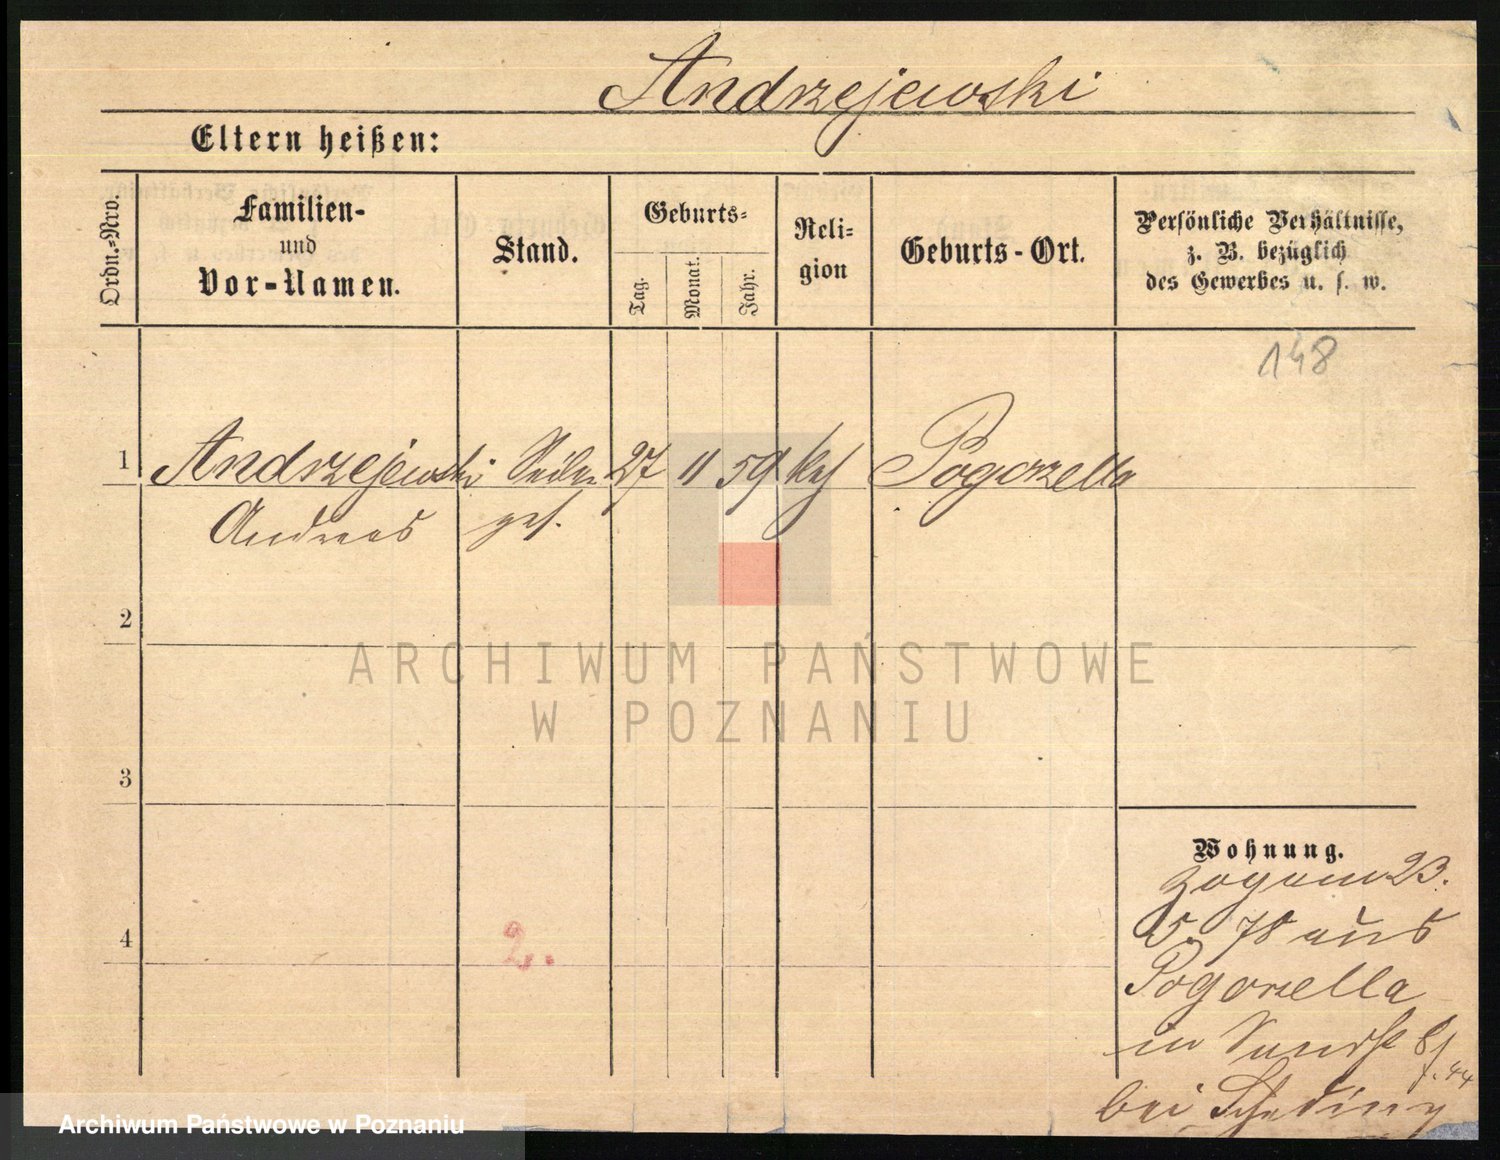 Andrzejewski
Eltern heißen:
Ordn.=Nro.
Familien-
und
Vor-Namen.
Stand.
Geburts=
Tag.
Monat.
Jahr.
Reli=
gion
Geburts-Ort.
Persönliche Verhältnisse,
z. B. bezüglich
des Gewerbes u. s. w.
148
1 Andrzejewski 27 11 59 Pogorzella
Andreas
2
3
4
2.
Wohnung.
23.
5. 78 aus
Pogorzella
in
bei
ARCHIWUM PAŃSTWOWE
W POZNANIU
Archiwum Państwowe w Poznaniu